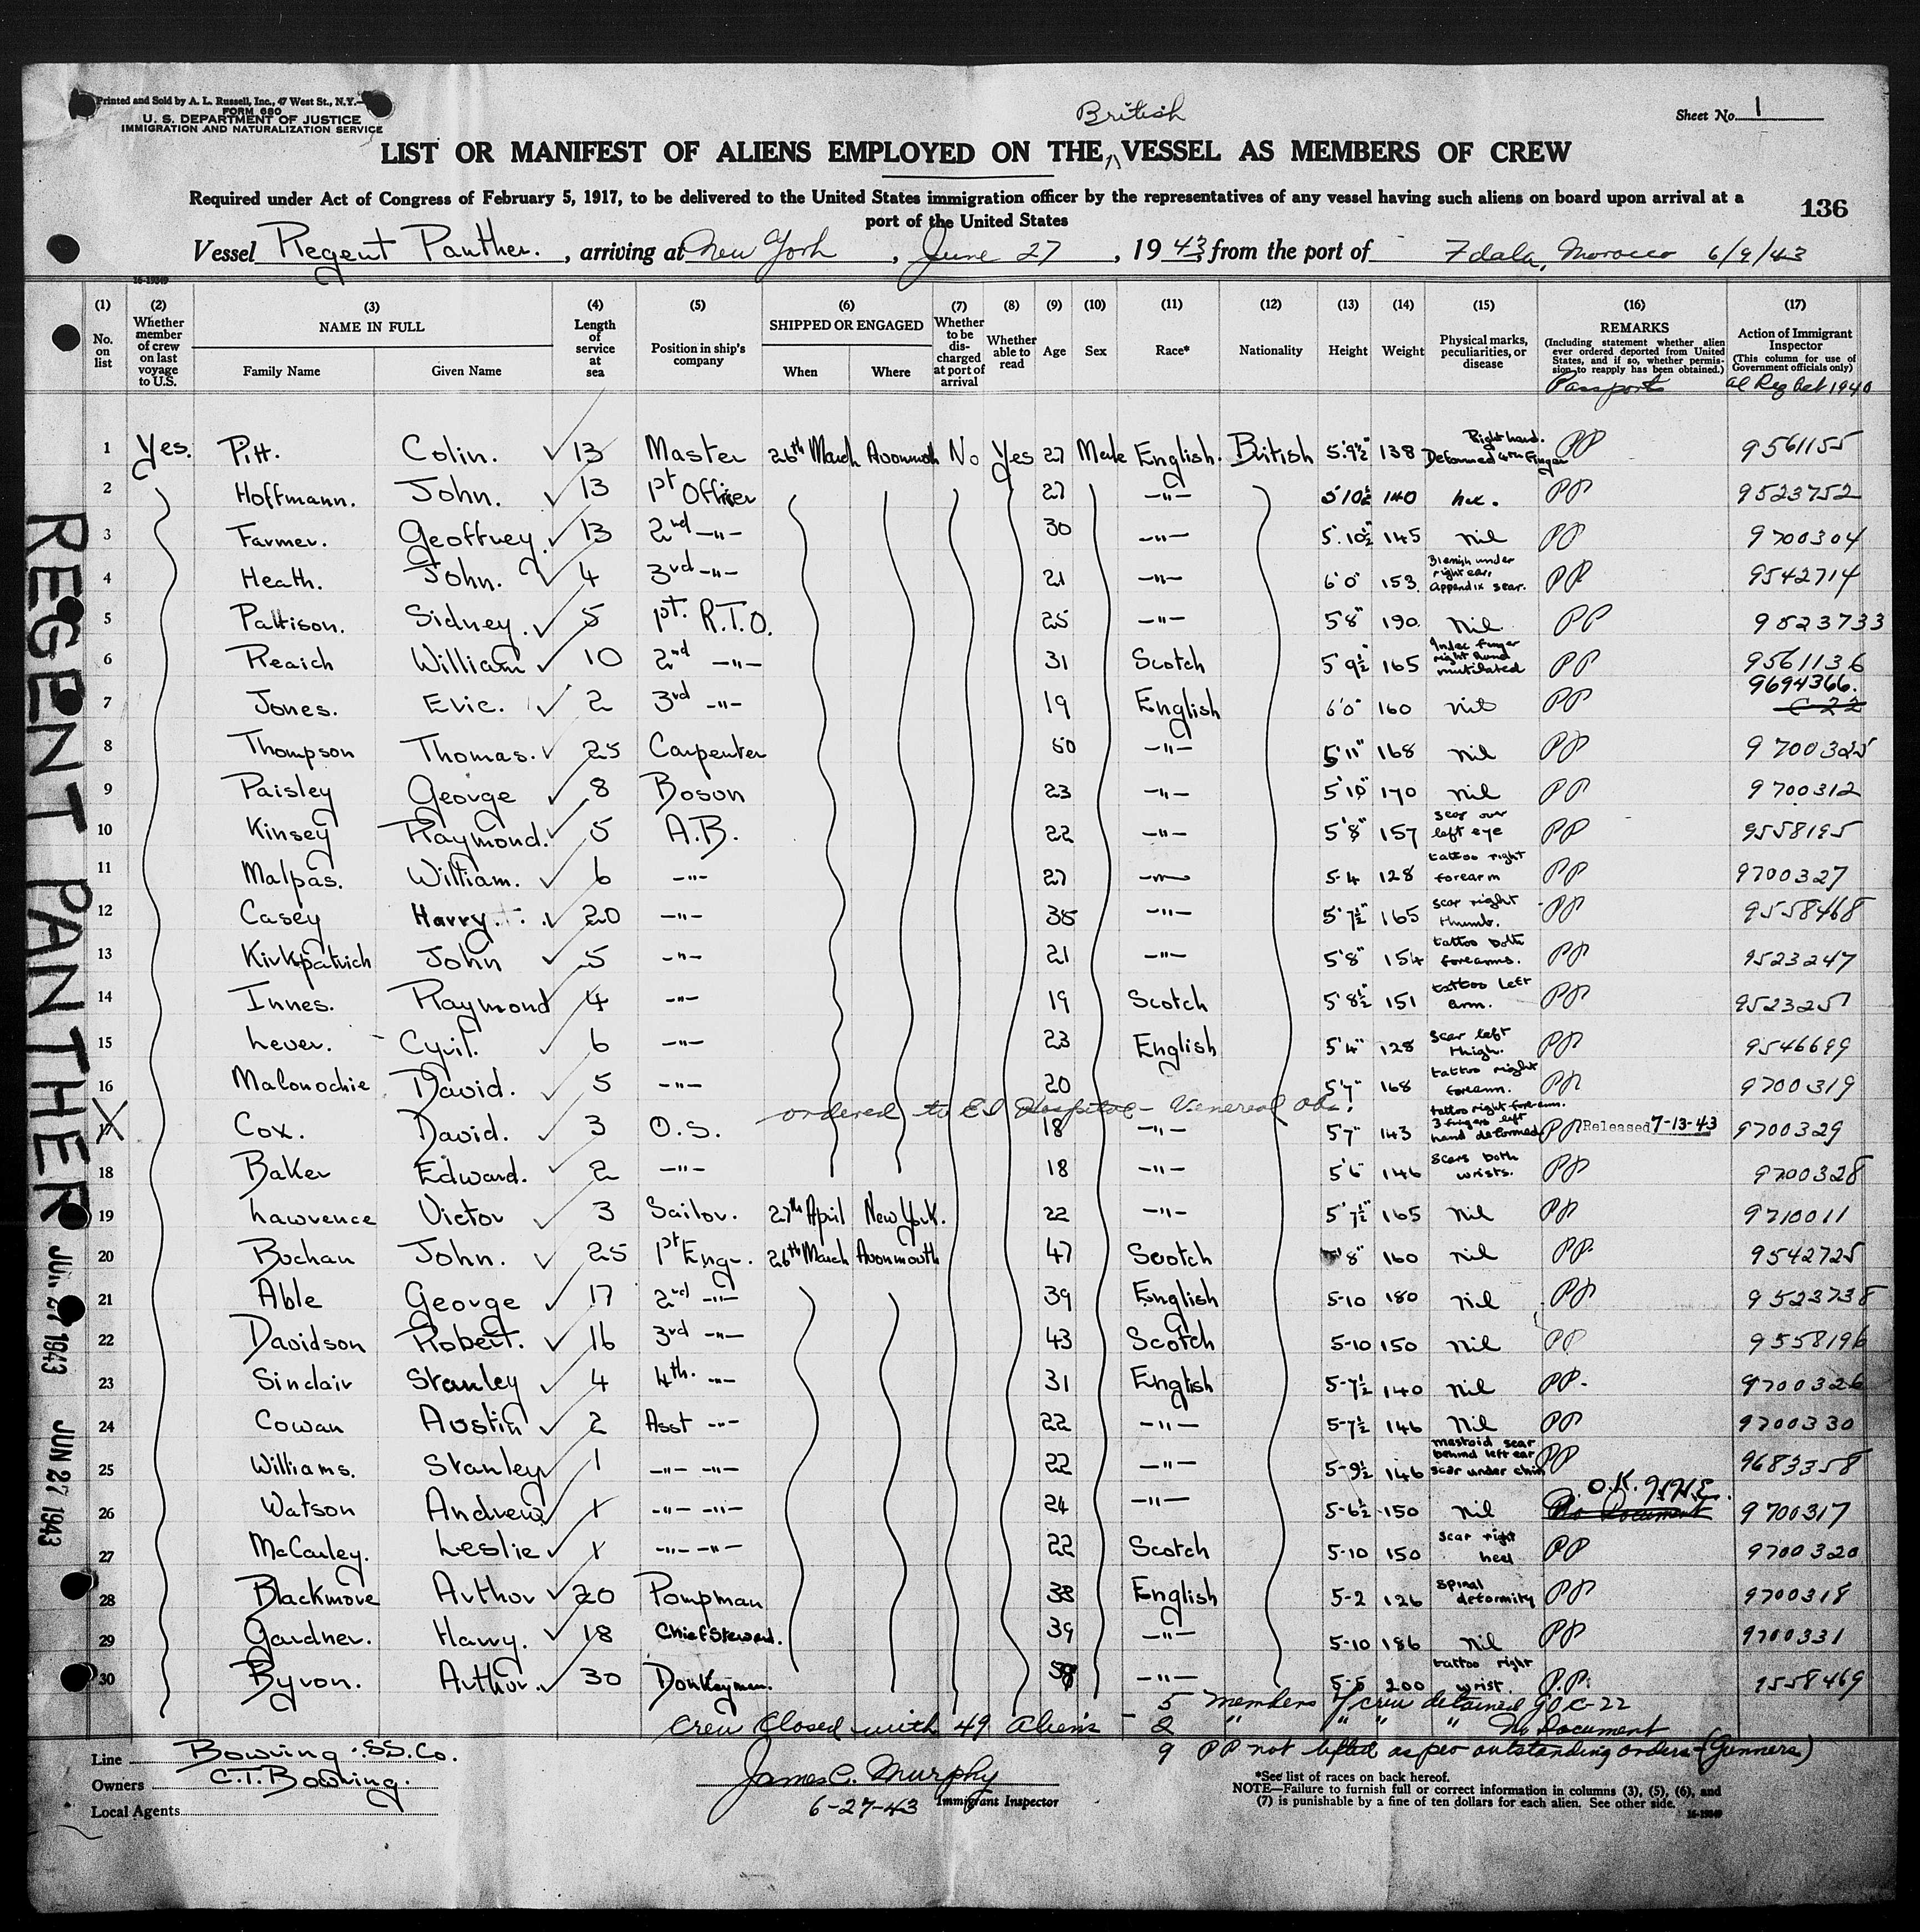 Printed and Sold by A. L. Russell, Inc., 47 West St., N.Y.
FORM 680
U. S. DEPARTMENT OF JUSTICE
IMMIGRATION AND NATURALIZATION SERVICE
Sheet No. 1
British
LIST OR MANIFEST OF ALIENS EMPLOYED ON THE VESSEL AS MEMBERS OF CREW
Required under Act of Congress of February 5, 1917, to be delivered to the United States immigration officer by the representatives of any vessel having such aliens on board upon arrival at a
port of the United States
136
Vessel Regent Panther. , arriving at New York , June 27 , 19 43 from the port of Fdala, Morocco 6/9/43
16-19849
(1) (2) (3) (4) (5) (6) (7) (8) (9) (10) (11) (12) (13) (14) (15) (16) (17)
No. on list
Whether member of crew on last voyage to U.S.
NAME IN FULL
Family Name Given Name
Length of service at sea
Position in ship's company
SHIPPED OR ENGAGED
When Where
Whether to be discharged at port of arrival
Whether able to read
Age Sex Race* Nationality Height Weight
Physical marks, peculiarities, or disease
REMARKS
(Including statement whether alien ever ordered deported from United States, and if so, whether permission to reapply has been obtained.)
Passports
Action of Immigrant Inspector
(This column for use of Government officials only)
Al Reg Act 1940
1 Yes. Pitt. Colin. 13 Master 26th March Avonmouth No Yes 27 Male English. British 5'9½" 138 Right hand. Deformed 4th Finger PP 9561155
2 Hoffmann. John. 13 1st Officer 27 -"- 5'10½ 140 PP 9523752
3 Farmer. Geoffrey. 13 2nd -"- 30 -"- 5'10½" 145 Nil PP 9700304
4 Heath. John. 4 3rd -"- 21 -"- 6'0" 153 Blemish under right ear, Appendix scar. PP 9542714
5 Pattison. Sidney. 5 1st. R.T.O. 25 -"- 5'8" 190 Nil PP 9523733
6 Reaich William 10 2nd -"- 31 Scotch 5'9½" 165 Index finger right hand mutilated PP 9561136
7 Jones. Eric. 2 3rd -"- 19 English 6'0" 160 Nil PP 9694366. C-22
8 Thompson Thomas. 25 Carpenter 50 -"- 5'11" 168 Nil PP 9700325
9 Paisley George 8 Bosun 23 -"- 5'10" 170 Nil PP 9700312
10 Kinsey Raymond. 5 A.B. 22 -"- 5'8" 157 scar over left eye PP 9558195
11 Malpas. William. 6 -"- 27 -"- 5-4 128 tattoo right forearm PP 9700327
12 Casey Harry. 20 -"- 38 -"- 5'7½" 165 scar right thumb. PP 9558468
13 Kirkpatrick John 5 -"- 21 -"- 5'8" 154 tattoo both forearms. PP 9523247
14 Innes. Raymond 4 -"- 19 Scotch 5'8½" 151 tattoo left arm. PP 9523251
15 Lever. Cyril. 6 -"- 23 English 5'4" 128 scar left thigh. PP 9546699
16 Malonochie David. 5 -"- 20 5'7" 168 tattoo right forearm. PP 9700319
ordered to E I Hospital - Venereal obs.
17 Cox. David. 3 O.S. 18 -"- 5'7" 143 tattoo right forearm. 3 fingers left hand deformed PP Released 7-13-43 9700329
18 Baker Edward. 2 -"- 18 -"- 5'6" 146 scars both wrists. PP 9700328
19 Lawrence Victor 3 Sailor. 27th April New York. 22 -"- 5'7½" 165 Nil PP 9710011
20 Buchan John. 25 1st Eng. 26th March Avonmouth 47 Scotch 5'8" 160 Nil PP. 9542725
21 Able George 17 2nd -"- 39 English 5-10 180 Nil PP 9523738
22 Davidson Robert. 16 3rd -"- 43 Scotch 5-10 150 Nil PP 9558196
23 Sinclair Stanley 4 4th. -"- 31 English 5-7½ 140 Nil PP. 9700326
24 Cowan Austin 2 Asst -"- 22 -"- 5-7½ 146 Nil PP 9700330
25 Williams. Stanley 1 -"- -"- 22 -"- 5-9½ 146 mastoid scar behind left ear scar under chin PP 9683358
26 Watson Andrew 1 -"- -"- 24 -"- 5-6½ 150 Nil O.K. No Document 9700317
27 McCauley. Leslie 1 -"- -"- 22 Scotch 5-10 150 scar right heel PP 9700320
28 Blackmore Arthur 20 Pumpman 38 English 5-2 126 spinal deformity PP 9700318
29 Gardner. Harry. 18 Chief Steward. 39 -"- 5-10 186 Nil PP 9700331
30 Byron. Arthur. 30 Donkeyman. -"- 5-5 200 tattoo right wrist. P.P. 9558469
5 members of crew detained C-22
Crew Closed with 49 Aliens - 2 " " " " No Document
9 PP not lifted as per outstanding orders - (Gunners)
Line Bowring SS. Co.
Owners C.T. Bowring.
Local Agents
James C. Murphy
Immigrant Inspector
6-27-43
*See list of races on back hereof.
NOTE—Failure to furnish full or correct information in columns (3), (5), (6), and
(7) is punishable by a fine of ten dollars for each alien. See other side.
16-19849
REGENT PANTHER
JUN 27 1943
JUN 27 1943